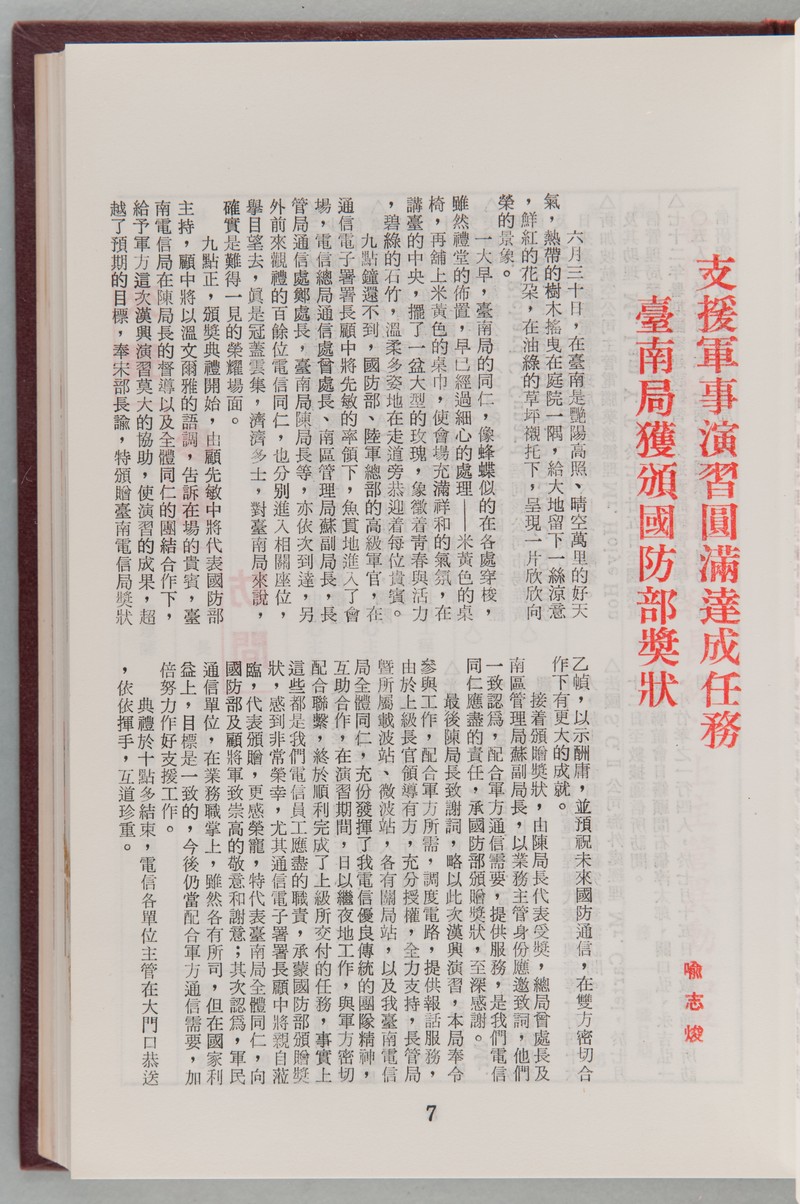 支援軍事演習圓滿達成任務
臺南局獲頒國防部獎狀
喩志燧
六月三十日，在臺南是艷陽高照、晴空萬里的好天
氣，熱帶的樹木搖曳在庭院一隅，給大地留下一絲涼意
，鮮紅的花朶，在油綠的草坪襯托下，呈現一片欣欣向
榮的景象。
一大早，臺南局的同仁，像蜂蝶似的在各處穿梭，
雖然禮堂的佈置，早已經過細心的處理——米黃色的桌
椅，再舖上米黃色的桌巾，使會場充滿祥和的氣氛，在
講臺的中央，擺了一盆大型的玫瑰，象徵着青春與活力
，碧綠的石竹，溫柔多姿地在走道旁恭迎着每位貴賓。
九點鐘還不到，國防部、陸軍總部的高級軍官，在
通信電子署署長顧中將先敏的率領下，魚貫地進入了會
場，電信總局通信處曾處長、南區管理局蘇副局長，長
管局通信處鄭處長，臺南局陳局長等，亦依次到達，另
外前來觀禮的百餘位電信同仁，也分別進入相關座位，
擧目望去，眞是冠蓋雲集，濟濟多士，對臺南局來說，
確實是難得一見的榮耀場面。
九點正，頒獎典禮開始，由顧先敏中將代表國防部
主持，顧中將以溫文爾雅的語調，告訴在場的貴賓，臺
南電信局在陳局長的督導以及全體同仁的團結合作下，
給予軍方這次漢興演習莫大的協助，使演習的成果，超
越了預期的目標，奉宋部長諭，特頒贈臺南電信局獎狀
乙幀，以示酬庸，並預祝未來國防通信，在雙方密切合
作下有更大的成就。
接着頒贈獎狀，由陳局長代表受獎，總局曾處長及
南區管理局蘇副局長，以業務主管身份應邀致詞，他們
一致認爲，配合軍方通信需要，提供服務，是我們電信
同仁應盡的責任，承國防部頒贈獎狀，至深感謝。
最後陳局長致謝詞，略以此次漢興演習，本局奉令
參與工作，配合軍方所需，調度電路，提供報話服務，
由於上級長官領導有方，充分授權，全力支持，長管局
曁所屬載波站、微波站，各有關局站，以及我臺南電信
局全體同仁，充份發揮了我電信優良傳統的團隊精神，
互助合作，在演習期間，日以繼夜地工作，與軍方密切
配合聯繫，終於順利完成了上級所交付的任務，事實上
這些都是我們電信員工應盡的職責，承蒙國防部頒贈獎
狀，感到非常榮幸，尤其通信電子署署長顧中將親自蒞
臨，代表頒贈，更感榮寵，特代表臺南局全體同仁，向
國防部及顧將軍致崇高的敬意和謝意；其次認爲，軍民
通信單位，在業務職掌上，雖然各有所司，但在國家利
益上，目標是一致的，今後仍當配合軍方通信需要，加
倍努力作好支援工作。
典禮於十點多結束，電信各單位主管在大門口恭送
，依依揮手，互道珍重。
7